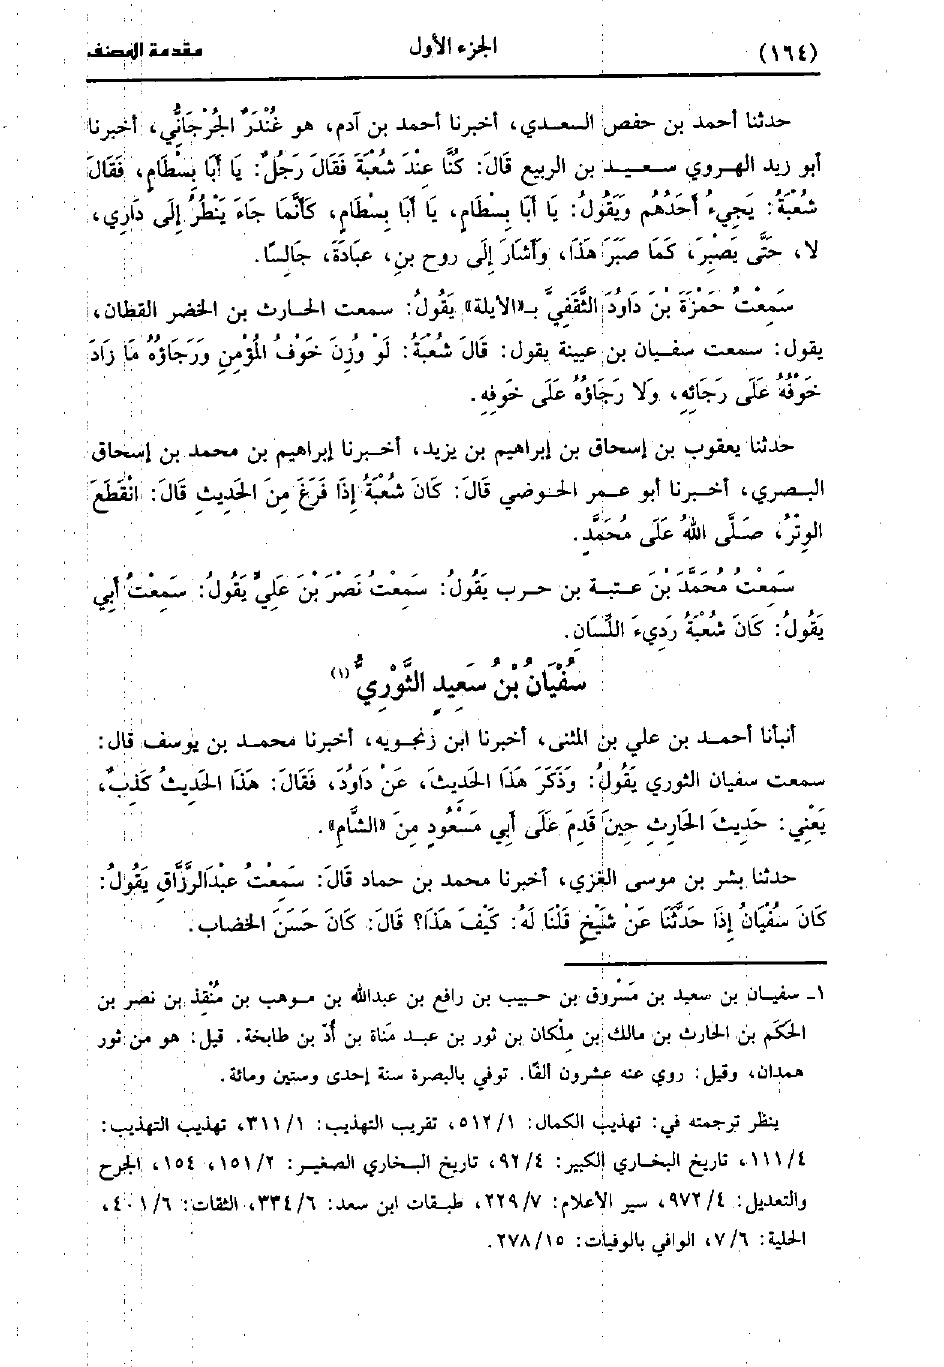 (١٦٤) الجزء الأول مقدمة المصنف
حدثنا أحمد بن حفص السعدي، أخبرنا أحمد بن آدم، هو غُنْدَرٌ الجُرْجَانيُّ، أخبرنا
أبو زيد الهروي سعيد بن الربيع قَالَ: كُنَّا عِنْدَ شُعْبَةَ فَقَالَ رَجُلٌ: يَا أَبَا بِسْطَامٍ، فَقَالَ
شُعْبَةُ: يَجِيءُ أَحَدُهُم وَيَقُولُ: يَا أَبَا بِسْطَامٍ، يَا أَبَا بِسْطَامٍ، كَأَنَّمَا جَاءَ يَنْظُرُ إِلَى دَارِي،
لا، حَتَّى يَصْبِرَ، كَمَا صَبَرَ هَذَا، وَأَشَارَ إِلَى روح بنِ، عبَادَةَ، جَالِسًا.
سَمِعْتُ حَمْزَةَ بْنَ دَاوُدَ الثَّقَفِيَّ بـ«الأيلة» يَقُولُ: سمعت الحارث بن الخضر القطان،
يقول: سمعت سفيان بن عيينة يقول: قَالَ شُعْبَةُ: لَوْ وُزِنَ خَوْفُ المُؤْمِنِ وَرَجَاؤُهُ مَا زَادَ
خَوْفُهُ عَلَى رَجَائِهِ، وَلا رَجَاؤُهُ عَلَى خَوفِهِ.
حدثنا يعقوب بن إسحاق بن إبراهيم بن يزيد، أخبرنا إبراهيم بن محمد بن إسحاق
البصري، أخبرنا أبو عمر الحوضي قَالَ: كَانَ شُعْبَةُ إِذَا فَرَغَ مِنَ الحَدِيثِ قَالَ: انْقَطَعَ
الوِتْرُ، صَلَّى اللهُ عَلَى مُحَمَّدٍ.
سَمِعْتُ مُحَمَّدَ بْنَ عتبة بن حرب يَقُولُ: سَمِعْتُ نَصْرَ بْنَ عَلِيٍّ يَقُولُ: سَمِعْتُ أَبِي
يَقُولُ: كَانَ شُعْبَةُ رَدِيءَ اللِّسَانِ.
سُفْيَانُ بْنُ سَعِيدٍ الثَّوْرِيُّ(١)
أنبأنا أحمد بن علي بن المثنى، أخبرنا ابن زنجويه، أخبرنا محمد بن يوسف قال:
سمعت سفيان الثوري يَقُولُ: وَذَكَرَ هَذَا الحَدِيثَ، عَنْ دَاوُدَ، فَقَالَ: هَذَا الحَدِيثُ كَذِبٌ،
يَعْنِي: حَدِيثَ الحَارِثِ حِينَ قَدِمَ عَلَى أَبِي مَسْعُودٍ مِنَ «الشَّامِ».
حدثنا بشر بن موسى الغزي، أخبرنا محمد بن حماد قَالَ: سَمِعْتُ عبْدَالرَّزَّاقِ يَقُولُ:
كَانَ سُفْيَانُ إِذَا حَدَّثَنَا عَنْ شَيْخٍ قُلْنَا لَهُ: كَيْفَ هَذَا؟ قَالَ: كَانَ حَسَنَ الخضاب.
١ـ سفيان بن سعيد بن مَسْروق بن حبيب بن رافع بن عبدالله بن موهب بن مُنْقِذ بن نصر بن
الحَكَم بن الحارث بن مالك بن مِلْكان بن ثور بن عبد مَناة بن أُدّ بن طابخة. قيل: هو من ثور
همدان، وقيل: روي عنه عشرون ألفًا. توفي بالبصرة سنة إحدى وستين ومائة.
ينظر ترجمته في: تهذيب الكمال: ٥١٢/١، تقريب التهذيب: ٣١١/١، تهذيب التهذيب:
١١١/٤، تاريخ البخاري الكبير: ٩٢/٤، تاريخ البخاري الصغير: ١٥١/٢، ١٥٤، الجرح
والتعديل: ٩٧٢/٤، سير الأعلام: ٢٢٩/٧، طبقات ابن سعد: ٣٣٤/٦، الثقات: ٤٠١/٦،
الحلية: ٧/٦، الوافي بالوفيات: ٢٧٨/١٥.